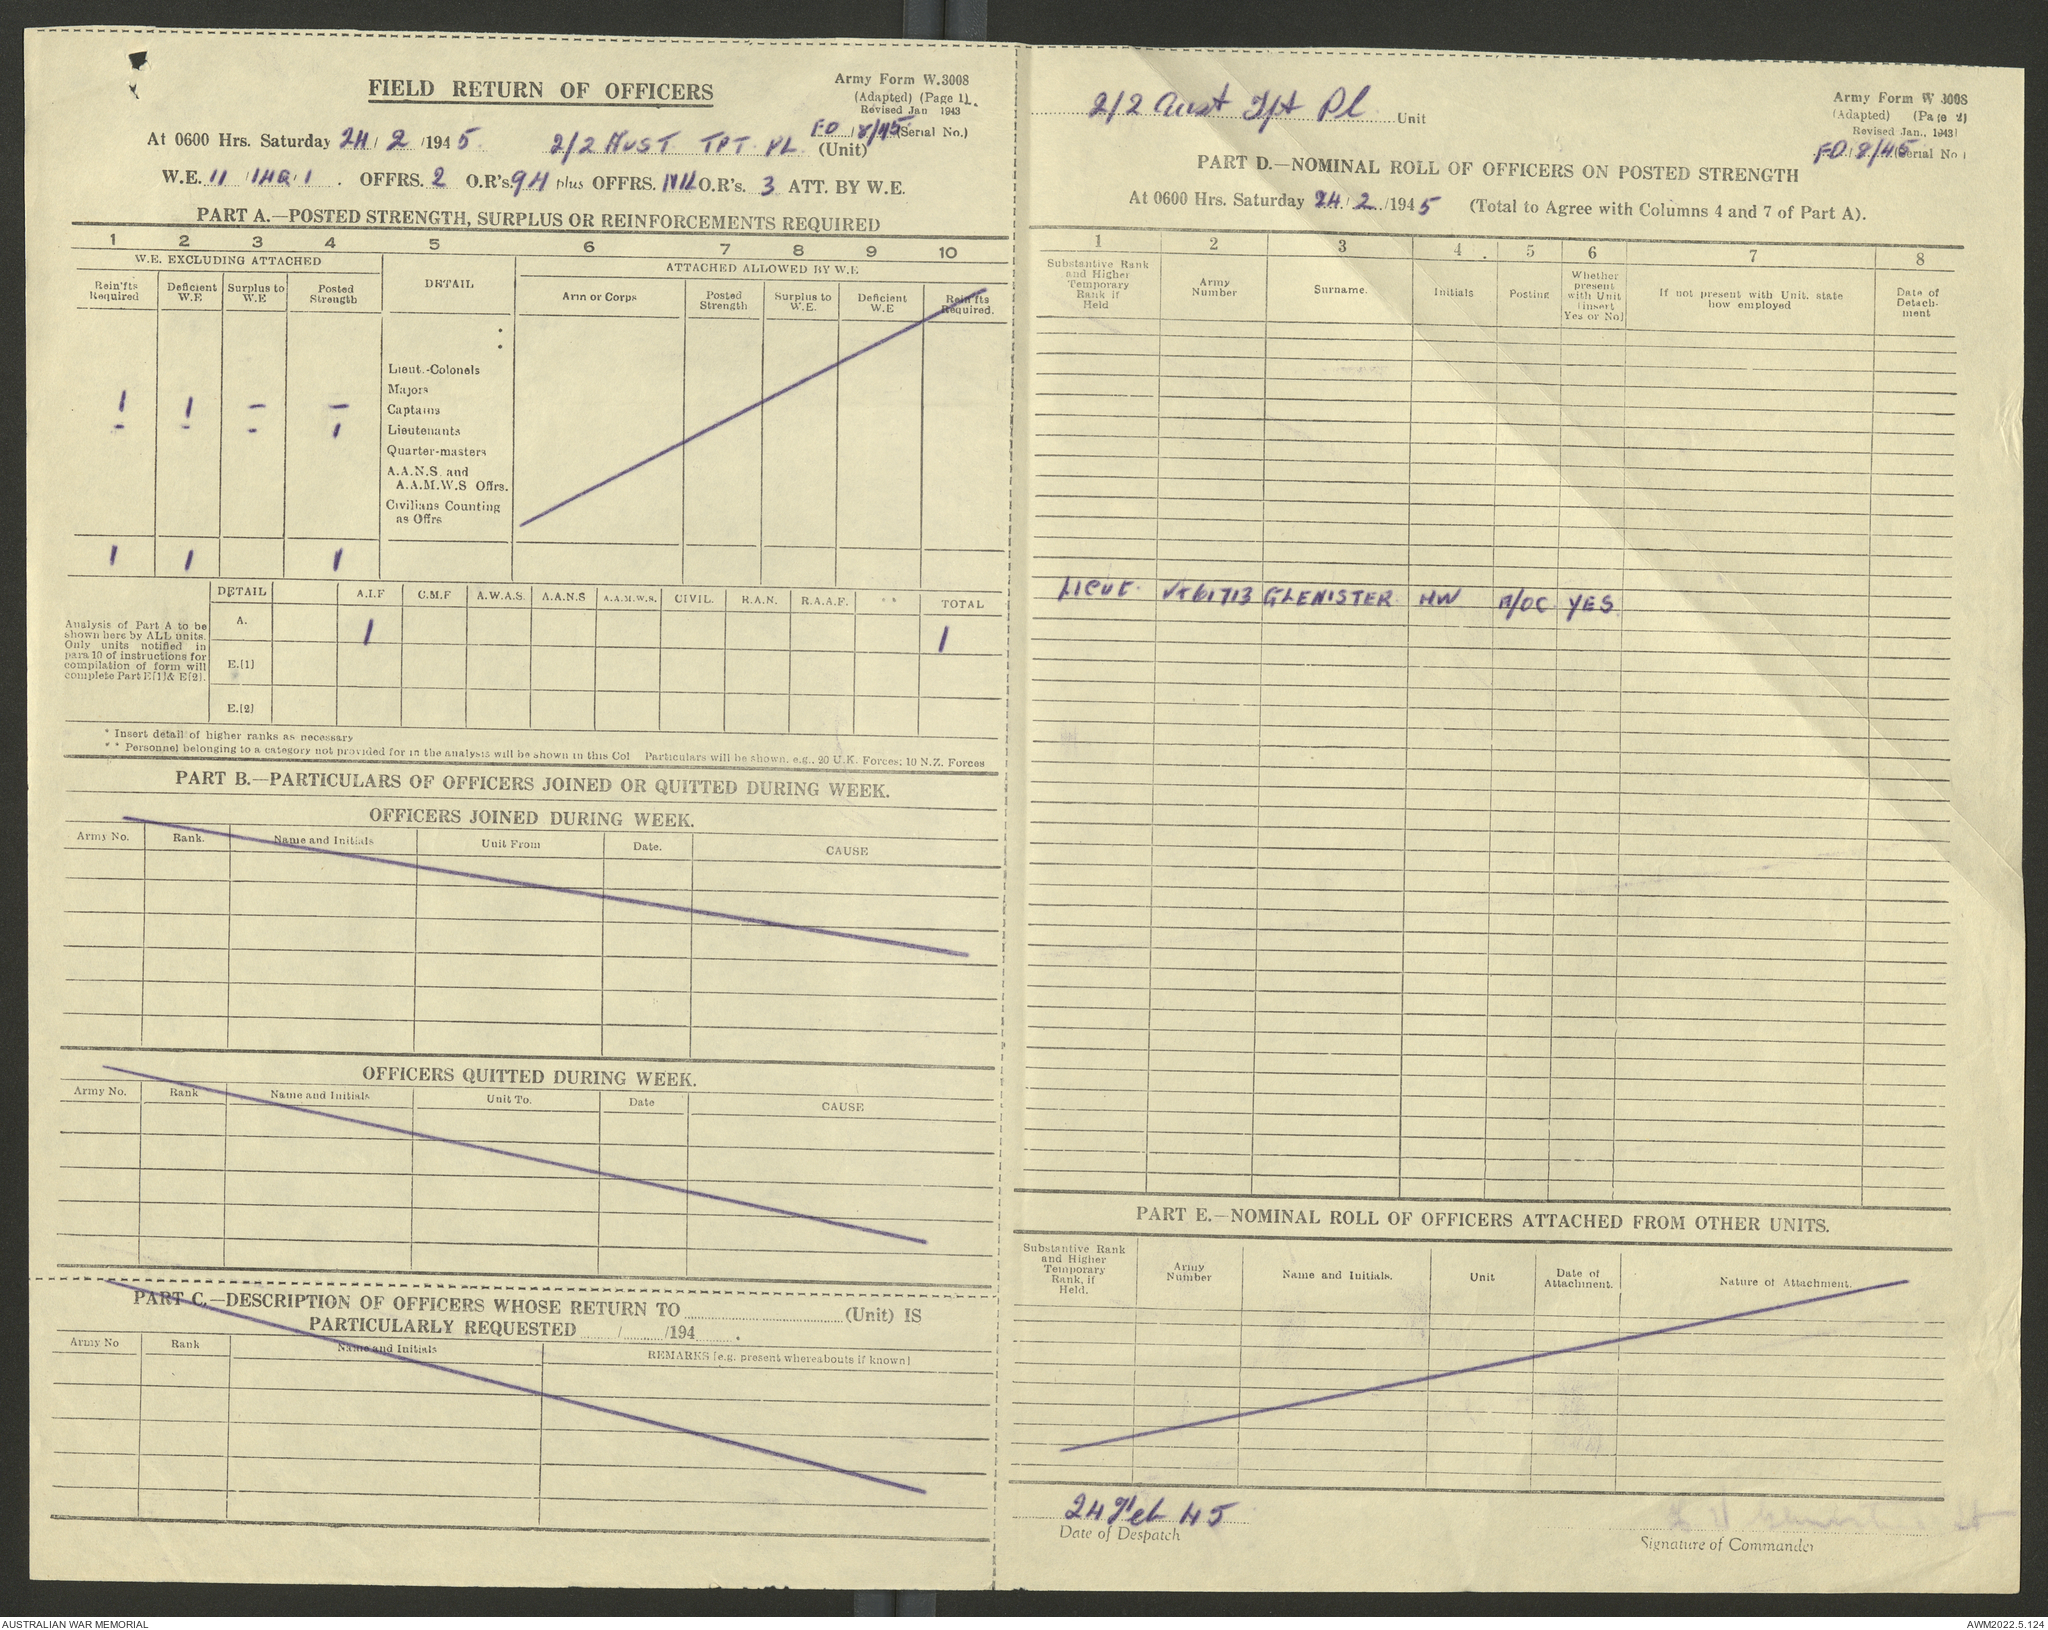 FIELD RETURN OF OFFICERS
Army Form W.3008
(Adapted) (Page 1).
Revised Jan 1943
FO / 8/45 (Serial No.)
At 0600 Hrs. Saturday 24 / 2 /1945. 2/2 AUST TPT PL (Unit)
W.E. II / 14Q / 1 . OFFRS. 2 O.R's. 94 plus OFFRS. NIL O.R's. 3 ATT. BY W.E.
PART A.—POSTED STRENGTH, SURPLUS OR REINFORCEMENTS REQUIRED
1 2 3 4 5 6 7 8 9 10
W.E. EXCLUDING ATTACHED DETAIL ATTACHED ALLOWED BY W.E
Rein'fts Required Deficient W.E Surplus to W.E Posted Strength Arm or Corps Posted Strength Surplus to W.E. Deficient W.E Rein'fts Required.
Lieut.-Colonels
Majors
1 1 — — Captains
- - - 1 Lieutenants
Quarter-masters
A.A.N.S. and
A.A.M.W.S Offrs.
Civilians Counting
as Offrs
1 1 1
DETAIL A.I.F C.M.F A.W.A.S. A.A.N.S A.A.M.W.S. CIVIL. R.A.N. R.A.A.F. * * TOTAL
A. 1 1
Analysis of Part A to be
shown here by ALL units.
Only units notified in
para 10 of instructions for
compilation of form will
complete Part E[1] & E[2].
E.[1]
E.[2]
* Insert detail of higher ranks as necessary
* * Personnel belonging to a category not provided for in the analysis will be shown in this Col Particulars will be shown. e.g., 20 U.K. Forces; 10 N.Z. Forces
PART B.—PARTICULARS OF OFFICERS JOINED OR QUITTED DURING WEEK.
OFFICERS JOINED DURING WEEK.
Army No. Rank. Name and Initials Unit From Date. CAUSE
OFFICERS QUITTED DURING WEEK.
Army No. Rank Name and Initials Unit To. Date CAUSE
PART C.—DESCRIPTION OF OFFICERS WHOSE RETURN TO (Unit) IS
PARTICULARLY REQUESTED / /194 .
Army No Rank Name and Initials REMARKS [e.g. present whereabouts if known]
2/2 Aust Tpt Pl Unit
Army Form W 3008
(Adapted) (Page 2)
Revised Jan., 1943)
FO / 8/45 (Serial No)
PART D.—NOMINAL ROLL OF OFFICERS ON POSTED STRENGTH
At 0600 Hrs. Saturday 24 / 2 /1945 (Total to Agree with Columns 4 and 7 of Part A).
1 2 3 4 5 6 7 8
Substantive Rank and Higher Temporary Rank if Held Army Number Surname. Initials Posting Whether present with Unit [insert Yes or No] If not present with Unit, state how employed Date of Detach-ment
LIEUT. VX61713 GLENISTER HW A/OC YES
PART E.—NOMINAL ROLL OF OFFICERS ATTACHED FROM OTHER UNITS.
Substantive Rank and Higher Temporary Rank, if Held. Army Number Name and Initials. Unit Date of Attachment. Nature of Attachment.
24 Feb 45
Date of Despatch
Signature of Commander
AUSTRALIAN WAR MEMORIAL
AWM2022.5.124